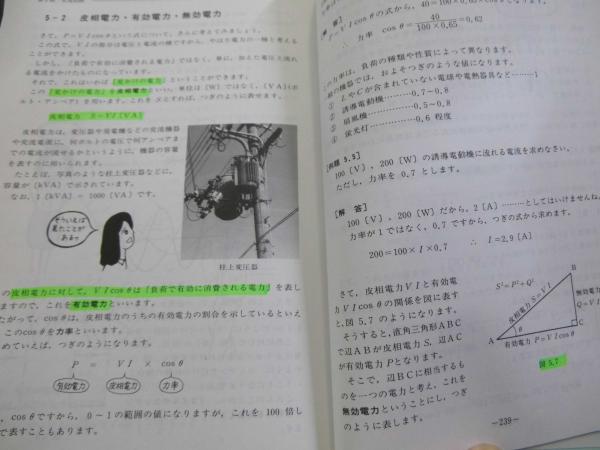 5-2 皮相電力・有効電力・無効電力
さて，P＝VI cosθという式について，さらに考えてみましょう。
この式で，VIの部分は電圧と電流の積ですから，やはり電力の一種と考える
ことができます。
しかし，「負荷で有効に消費される電力」ではなく，単に，加えた電圧と流れ
る電流をかけたものになっています。
それで，これはいわば「見かけの電力」ということができます。
この「見かけの電力」を皮相電力といい，単位は〔W〕ではなく，〔VA〕(ボ
ルト・アンペア) を用います。これを S とすれば，つぎのように表せます。
皮相電力 S＝VI〔VA〕
皮相電力は，変圧器や発電機などの交流機器
や交流電源に，何ボルトの電圧で何アンペアま
での電流が流せるかというように，機器の容量
を表すのに用いられます。
たとえば，写真のような柱上変圧器などに，
容量が〔kVA〕で示されています。
なお，1〔kVA〕＝1000〔VA〕です。
そういえば
見たことが
あるッ
柱上変圧器
の皮相電力に対して，VI cosθは「負荷で有効に消費される電力」を表し
ますので，これを有効電力といいます。
たがって，cosθは，皮相電力のうちの有効電力の割合を示しているといえ
このcosθを力率といいます。
めていえば，つぎのようになります。
P ＝ VI × cosθ
有効電力 皮相電力 力率
，cosθですから，0～1の範囲の値になりますが，これを 100 倍し
で表すこともあります。
答〕
P＝VI cosθの式から，40＝100×0.65×cosθとなります。
∴ 力率 cosθ＝40/100×0.65＝0.62
力率は，負荷の種類や性質によって異なります。
の機器では，およそつぎのような値になります。
① LやCが含まれていない電球や電熱器具など………1
② 誘導電動機………0.7～0.8
③ 扇風機………0.5～0.8
④ 蛍光灯………0.6 程度
[例題 5.5]
100〔V〕，200〔W〕の誘導電動機に流れる電流を求めなさい。
ただし，力率を 0.7 とします。
[解 答]
100〔V〕，200〔W〕だから，2〔A〕………としてはいけませんね。
力率が1ではなく，0.7ですから，つぎの式から求めます。
200＝100×I×0.7 ∴ I＝2.9〔A〕
さて，皮相電力 VI と有効電
力 VI cosθの関係を図に表す
と，図 5.7 のようになります。
そうすると，直角三角形ABC
で辺ABが皮相電力S，辺AC
が有効電力 P となります。
そこで，辺BCに相当するも
のを一つの電力と考え，これを
無効電力ということにし，つぎ
のように表します。
S²＝P²＋Q²
皮相電力 S＝VI
無効電力
A
B
C
θ
有効電力 P＝VI cosθ
図 5.7
－239－